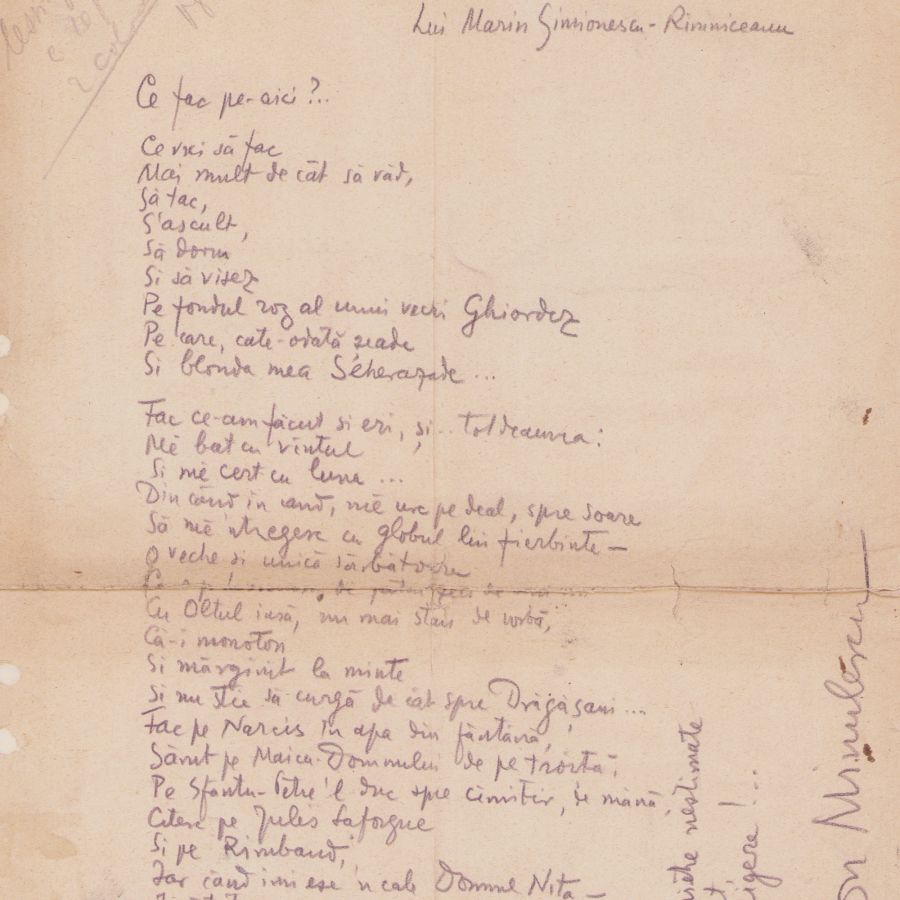 Lui Marin Simionescu-Rimniceanu
Ce fac pe-aici?..
Ce vrei să fac
Mai mult de cât să văd,
Să tac,
S'ascult,
Să dorm
Si să visez
Pe fondul roz al unui vechi Ghiordez
Pe care, cate-odată șeade
Si blonda mea Séherazade ...
Fac ce-am făcut si eri, și .. totdeauna:
Mĕ bat cu vîntul
Si mĕ cert cu luna ...
Din când în când, mĕ urc pe deal, spre soare
Să mĕ 'ntregesc cu globul lui fierbinte —
O veche si unică sărbătoare
de
Cu Oltul insă, nu mai stau de vorbă,
Că-i monoton
Si mărginit la minte
Si nu stie să curgă de cât spre Drăgășani ...
Fac pe Narcis în apa din fântână,
Sărut pe Maica-Domnului de pe troită,
Pe Sfântu-Petre'l duc spre cimitir, de mână,
Citesc pe Jules Laforgue
Si pe Rimbaud,
Iar când imi ese 'n cale Domnul Nită —
nestimate
!...
Minulescu